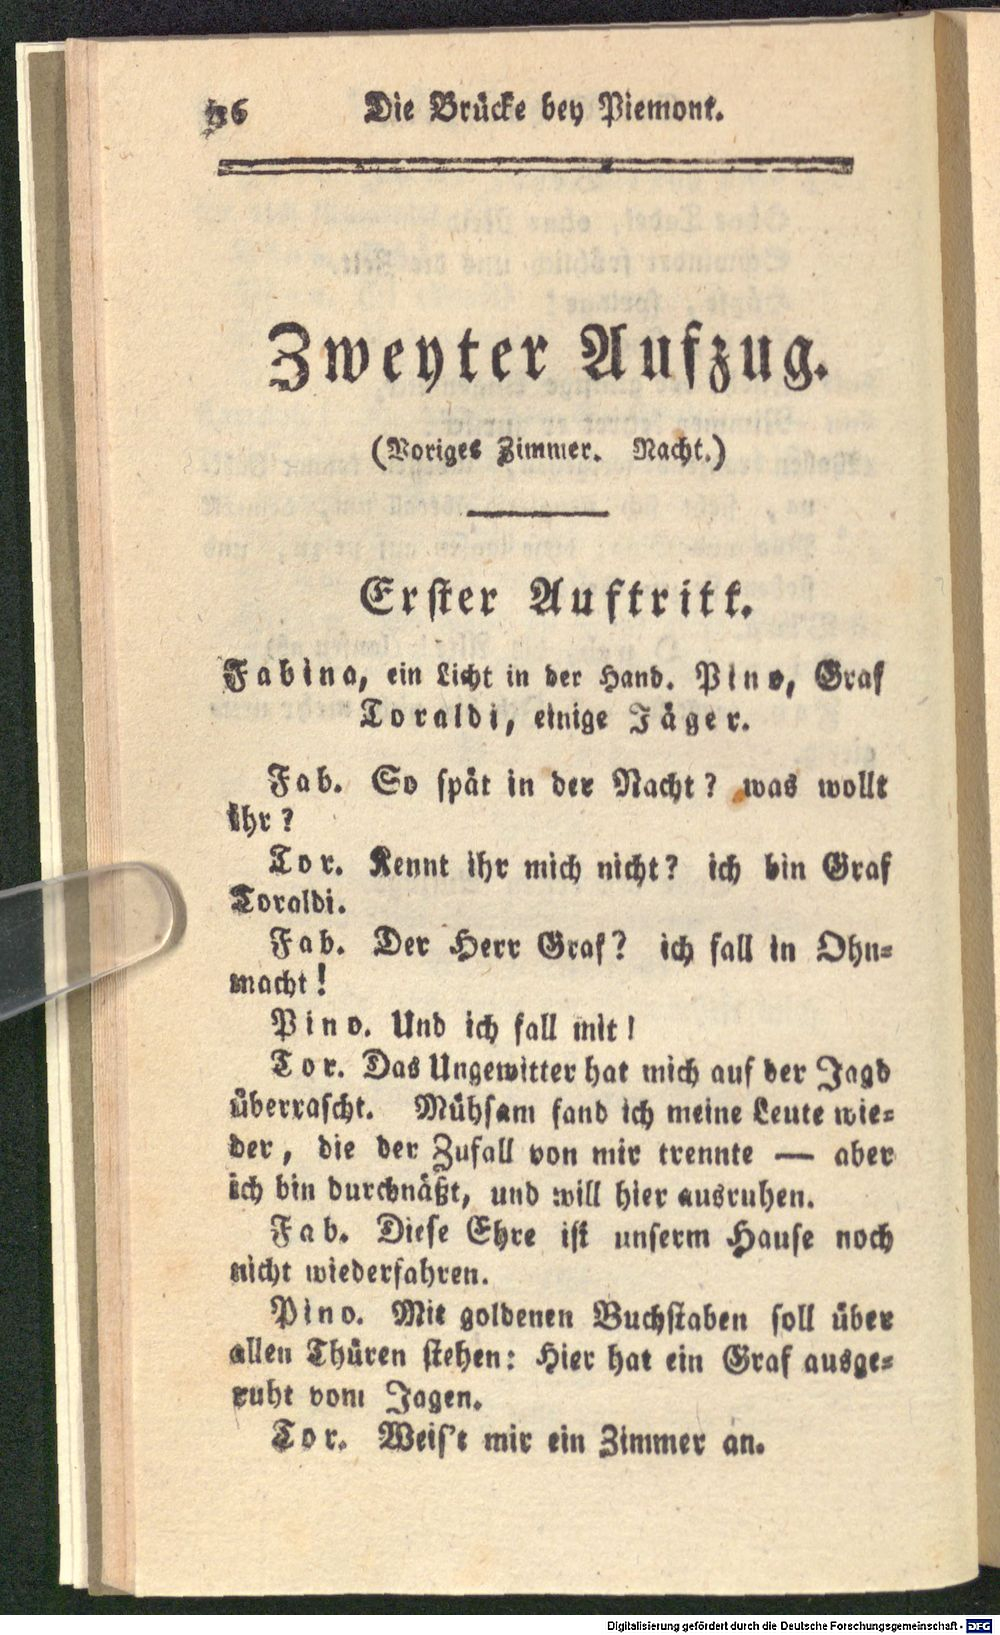 Die Brücke bey Piemont.
Zweyter Aufzug.
(Voriges Zimmer. Nacht.)
Erster Auftritt.
Fabina, ein Licht in der Hand. Pino, Graf
Toraldi, einige Jäger.
Fab. So spät in der Nacht? was wollt
ihr?
Tor. Kennt ihr mich nicht? ich bin Graf
Toraldi.
Fab. Der Herr Graf? ich fall in Ohn-
macht!
Pino. Und ich fall mit!
Tor. Das Ungewitter hat mich auf der Jagd
überrascht. Mühsam fand ich meine Leute wie-
der, die der Zufall von mir trennte — aber
ich bin durchnäßt, und will hier ausruhen.
Fab. Diese Ehre ist unserm Hause noch
nicht wiederfahren.
Pino. Mit goldenen Buchstaben soll über
allen Thüren stehen: Hier hat ein Graf ausge-
ruht vom Jagen.
Tor. Weis't mir ein Zimmer an.
Digitalisierung gefördert durch die Deutsche Forschungsgemeinschaft - DFG